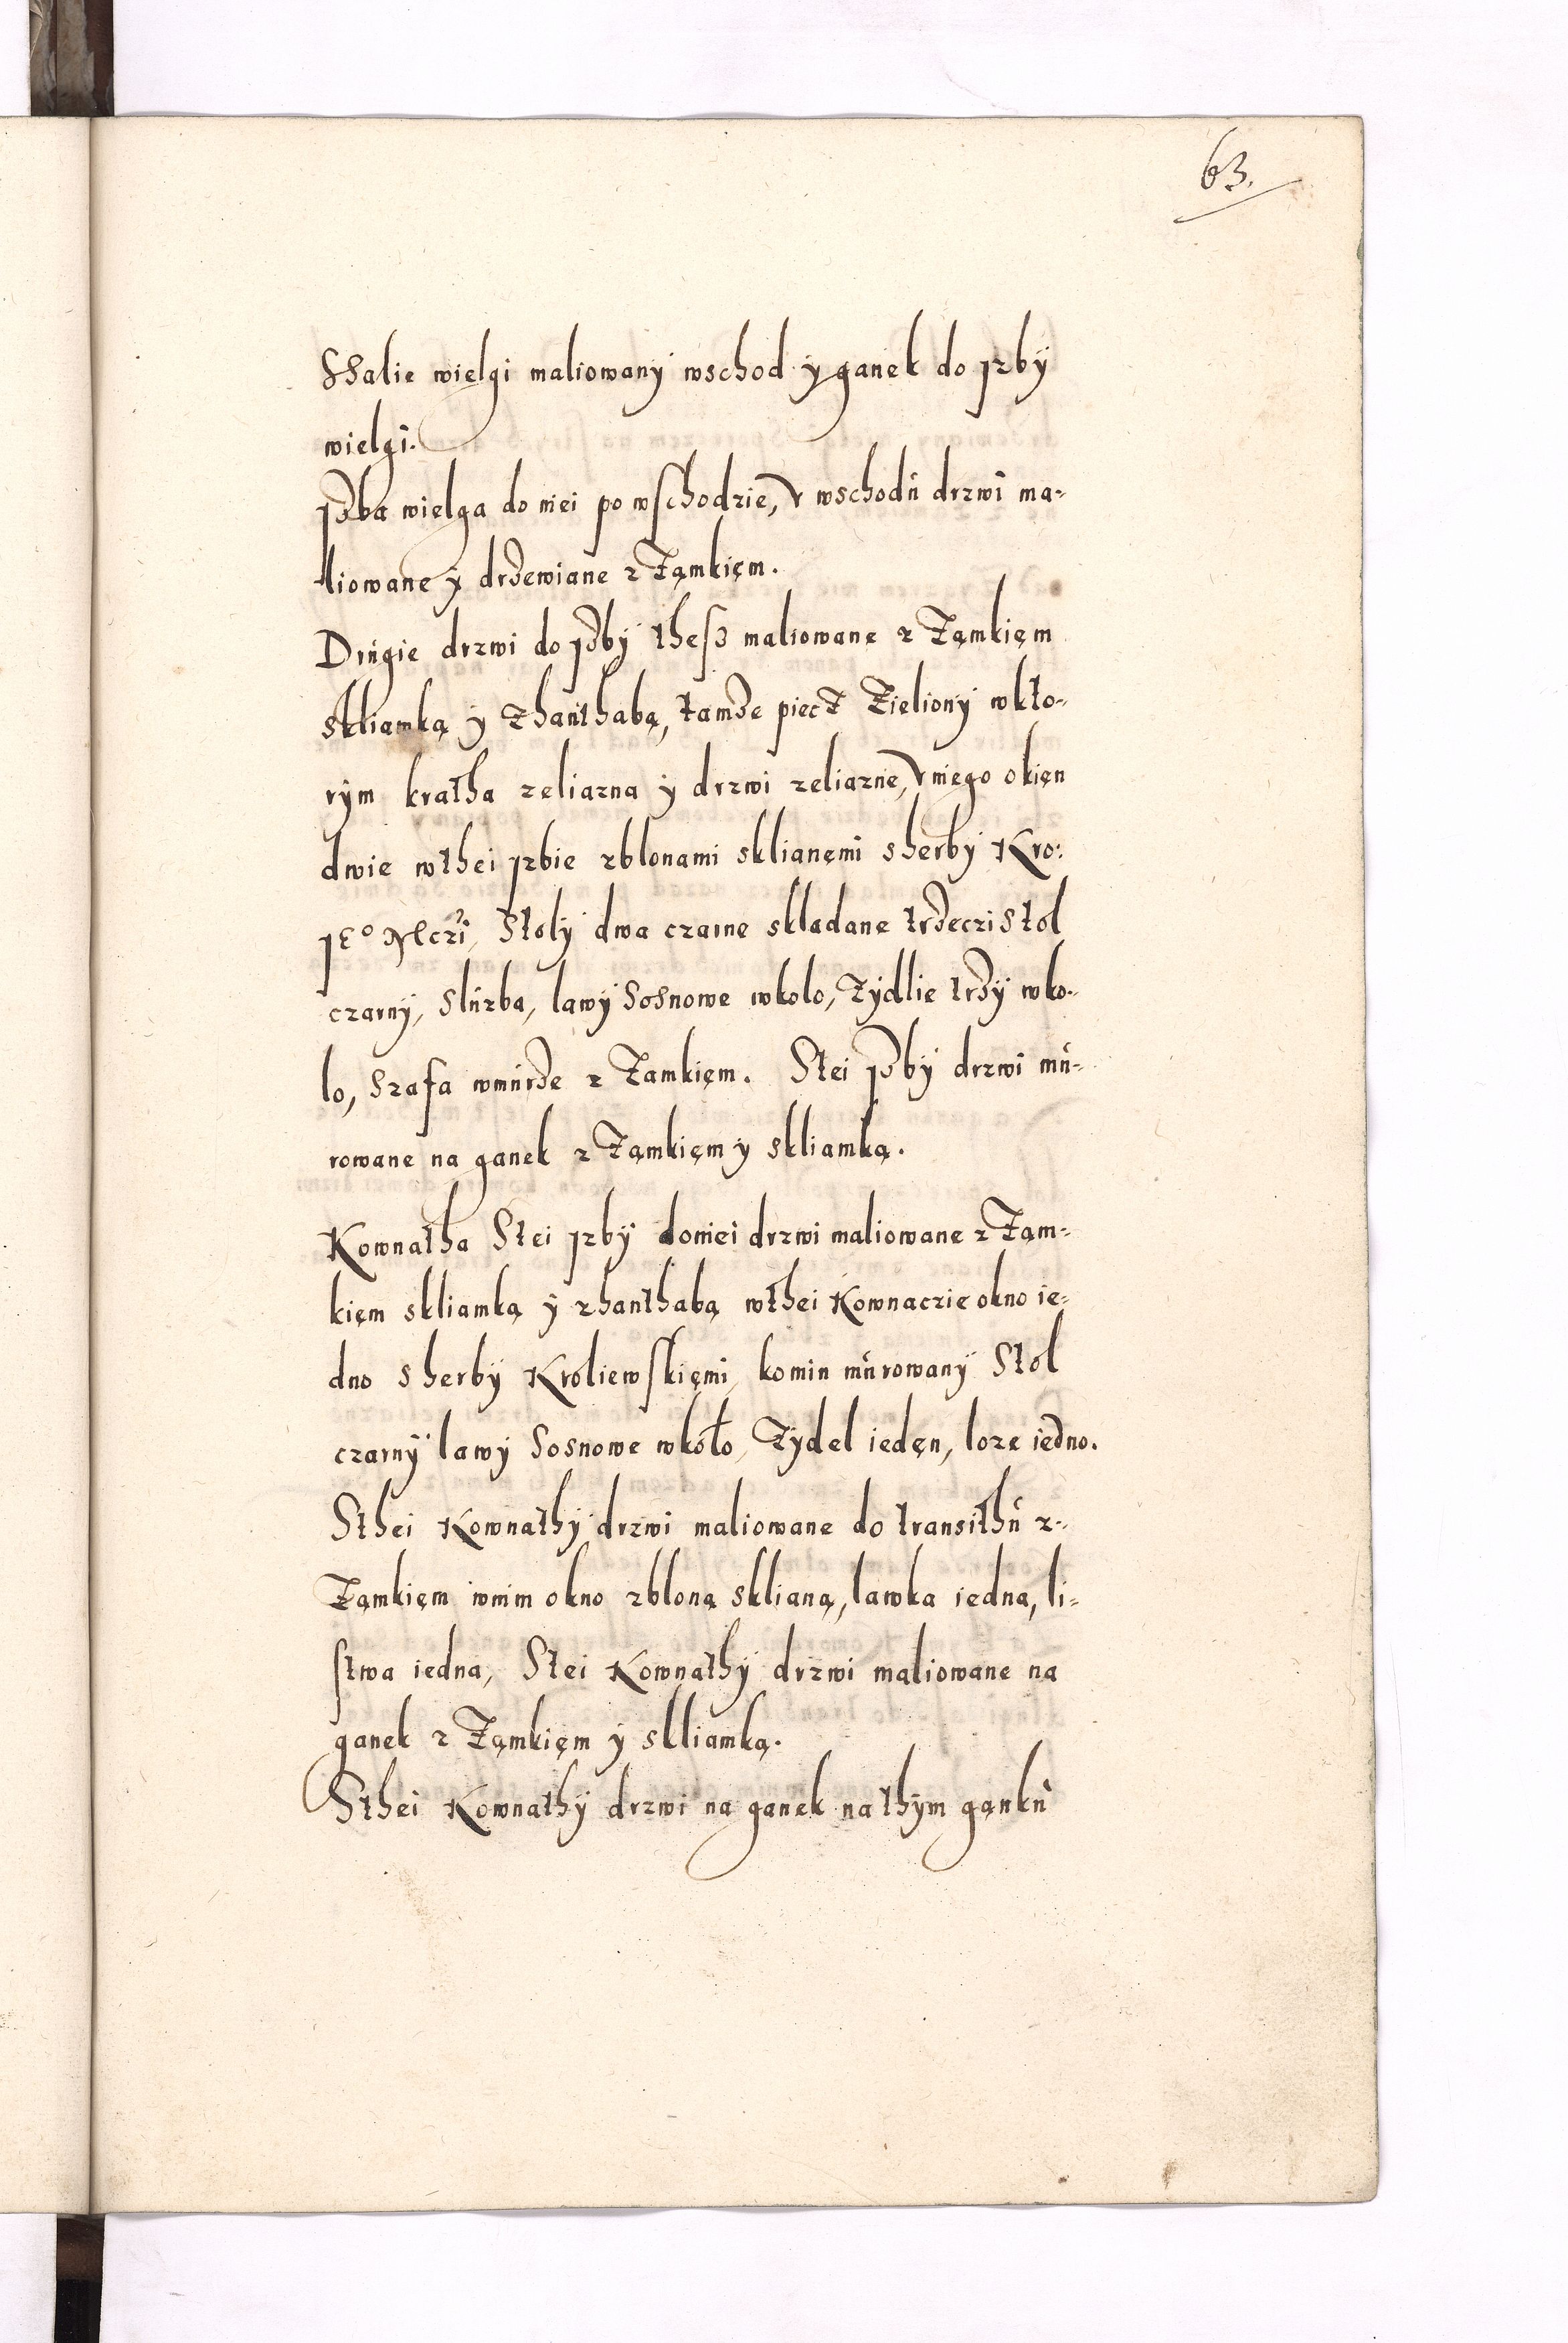 63.
Shalie wielgi maliowany wschod y ganek do jzby
wielgi.
jzba wielga do niei po wschodzie, v wschodu drzwi ma-
liowane y drzewiane z Zamkięm.
Drugie drzwi do jzby thesz maliowane z Zamkięm
skliamką y zhanthabą, tamze piecz Zieliony wkto-
rym kratha zeliazna y drzwi zeliazne, v niego okięn
dwie wthei jzbie zblonami sklianęmi s herby Kro:
JE° Mczi, Stoly dwa czarne skladane trzeczi Stol
czarny, Sluzba, lawy Sosnowe wkolo, Zydlie trzy wko-
lo, Szafa wmurze z Zamkięm. Stei jzby drzwi mu-
rowane na ganek z Zamkięm y skliamką.
Kownatha Stei jzby doniei drzwi maliowane z Zam-
kięm skliamką y zhanthabą wthei Kownaczie okno ie-
dno s herby Kroliewskięmi, komin murowany Stol
czarny lawy Sosnowe wkoło, Zydel iedęn, loze iedno.
Sthei Kownathy drzwi maliowane do transithu z-
Zamkięm wnim okno zbloną sklianą, lawka iedna, li-
stwa iedna, Stei Kownathy drzwi maliowane na
ganek z Zamkięm y skliamką.
Sthei Kownathy drzwi na ganek na thym ganku